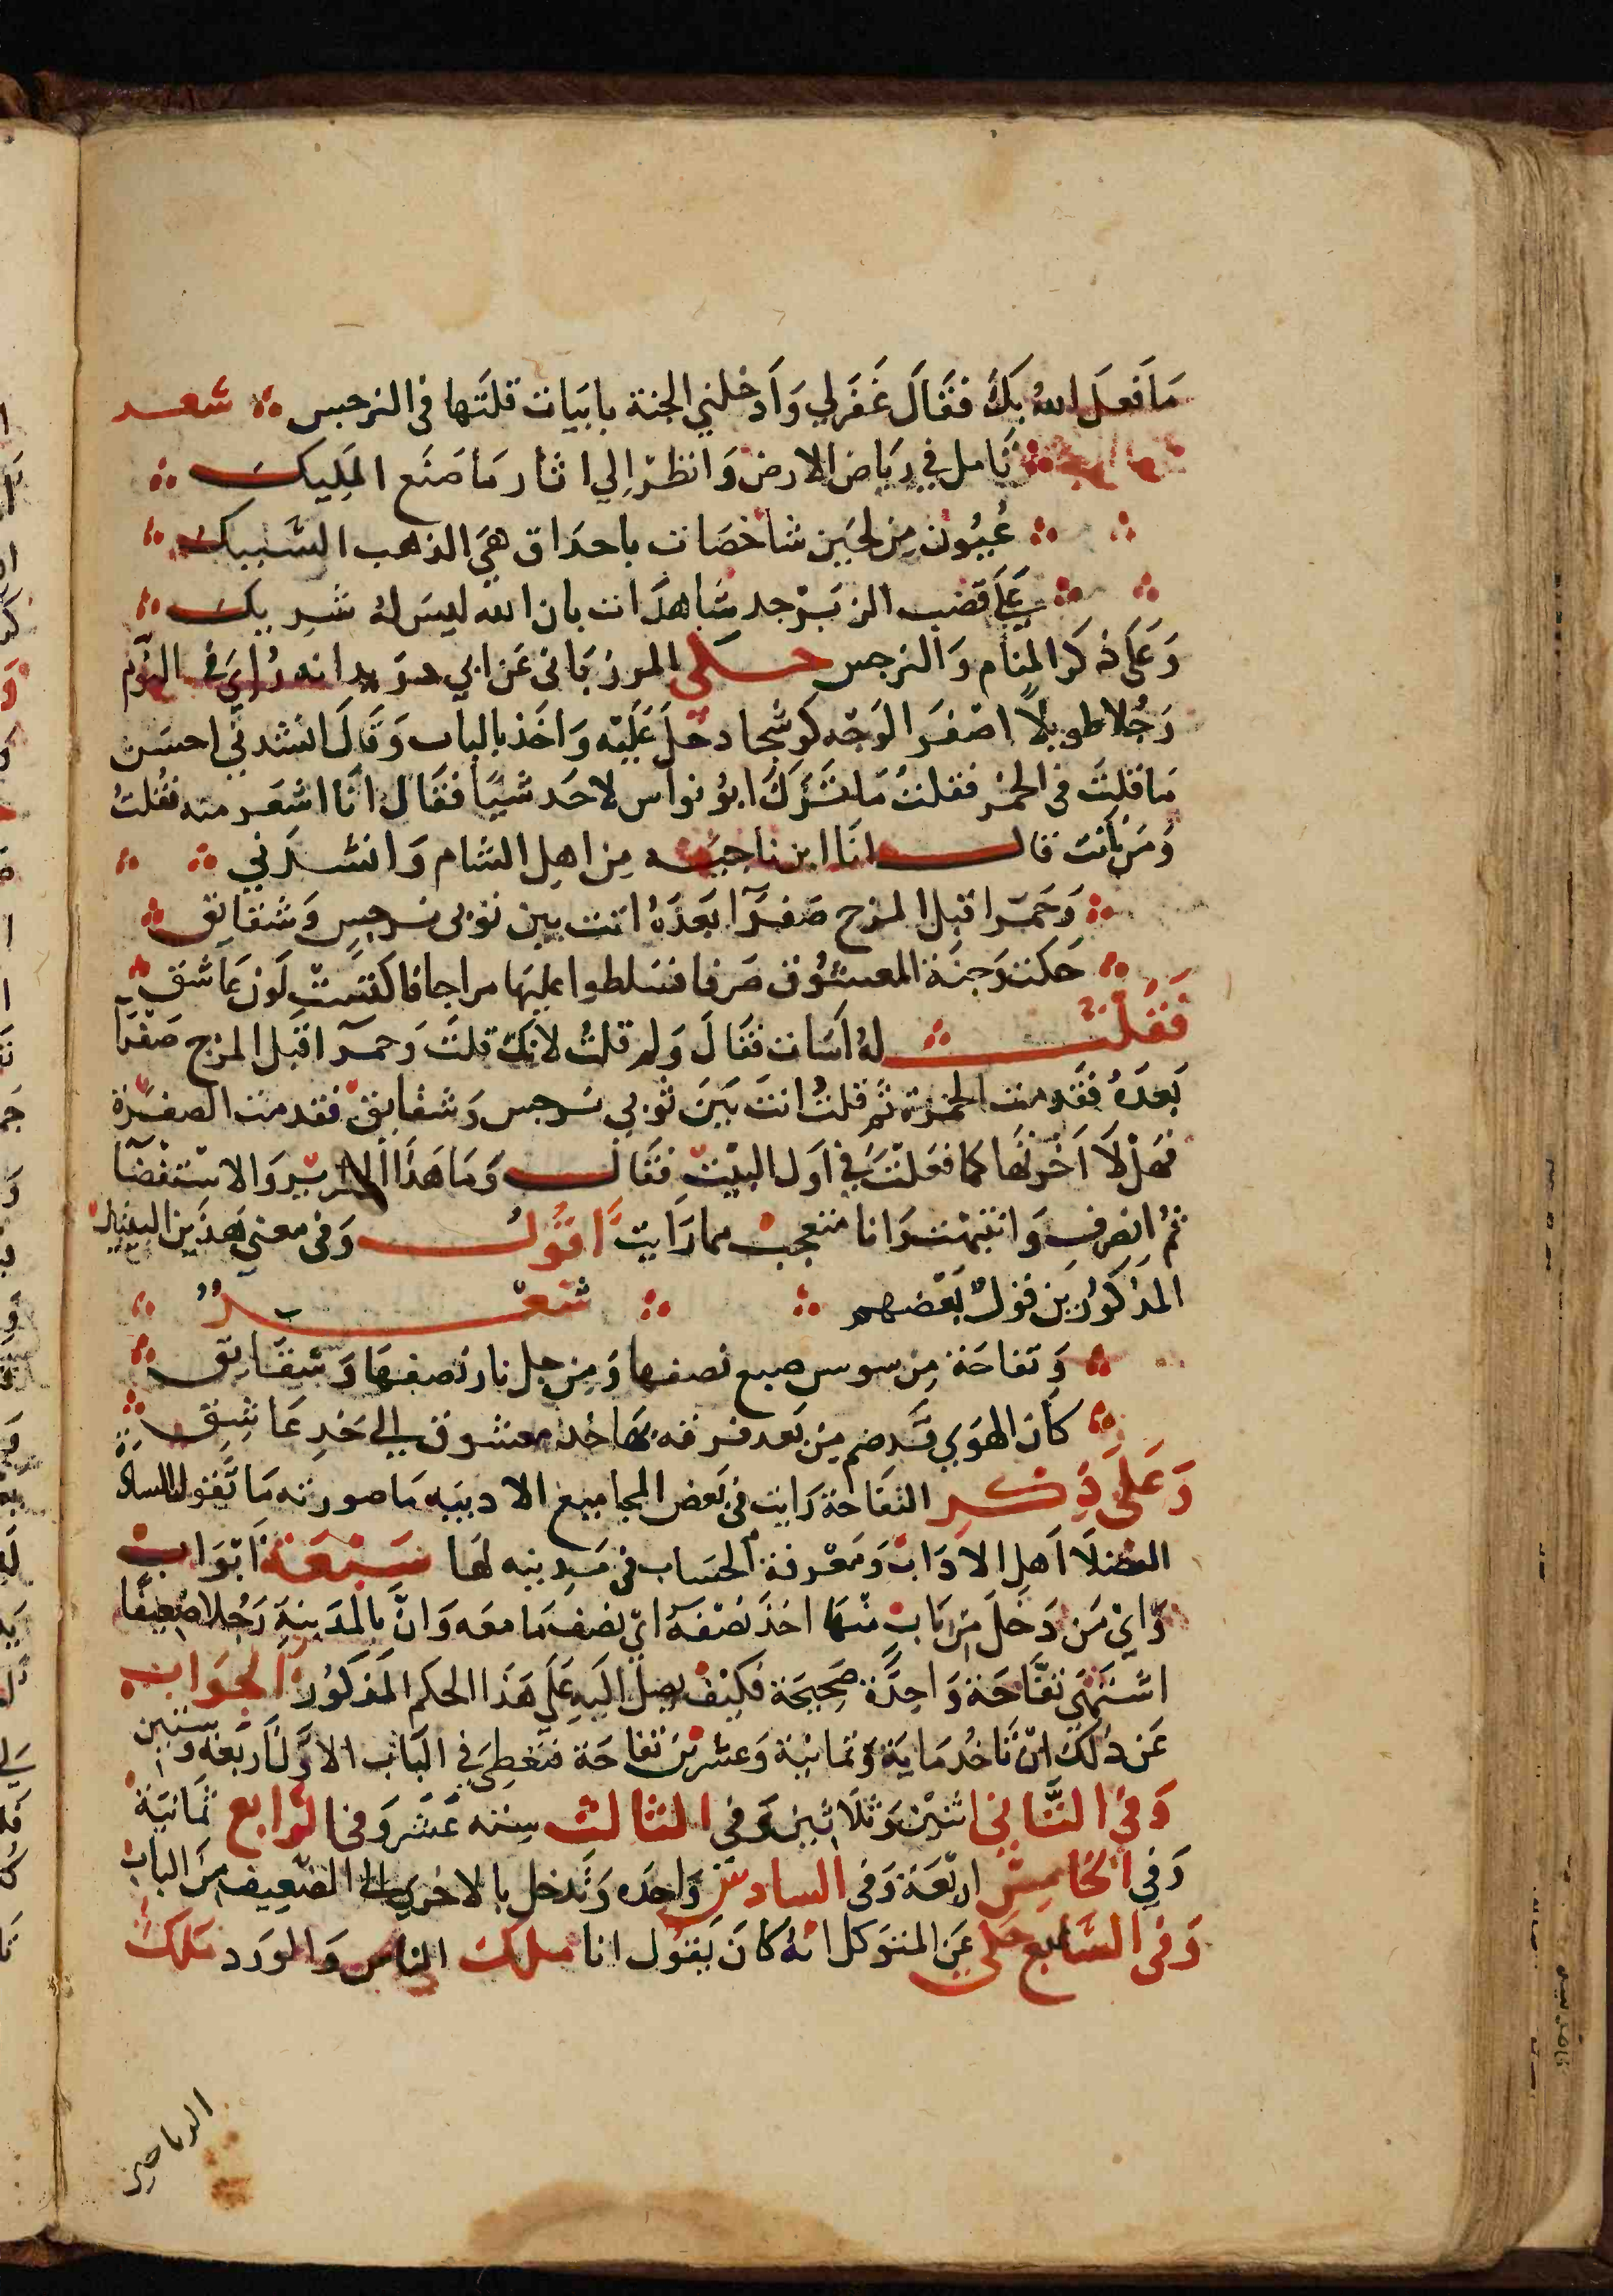 مَا فَعَلَ اللهُ بِكَ فَقَالَ غَفَرَ لِي وَاَدْخَلَنِي الجنة بابيات قلتها في النرجس شعر
تَامل في رياض الارض وَانظر اِلي اثار مَا صَنَع المَلِيك
عُيُون مِن لجَين شاخصَات باحدَاق هيَ الذهب السَّبيك
عَلَي قضب الزبرْجد شَاهدَات بان الله ليسَ لهُ شريك
وَعَلَي ذكر المنام وَالنرجس حكي المرزبَاني عَن ابي دريد انه رُاي في النوم
رَجُلا طويلًا اصْفَر الوَجْه كوسَجا دخلَ عَلَيْه وَاخَذ بالباب وَقَالَ انشدني احسَن
مَا قلتَ في الخمْر فقلتُ مَا تَرَكَ ابوُ نواس لاحَد شيًا فقَال انَا اشعَر منه فقُلتُ
وَمَن اَنت قال انَا ابن ناجيَه مِن اهل الشام وَانشدَني
وَحَمرَا قبل المزج صَفرَا بَعدَهُ اتت بين ثوبي نرجِسٍ وَشقايق
حَكت وَجنَة المعشوُق صرفا فسَلطوا عليهَا مزاجا فاكتسَتْ لَون عَاشق
فَقُلتُ لهُ اَسَات فقَالَ وَلم قلتُ لانكَ قلتَ وَحمرَا قبل المزج صَفْرَا
بَعدَهُ فقَدمت الحمْرَة ثُم قلتُ اتت بَيَن ثوبي نرجس وَشقايق فقدمت الصفرَة
فهَلْا اَخرتَهَا كما فعَلتَ في اَول البيْت فقَال وَمَا هَذَا الا والاستقضَا
ثُم انصرف وَانتبَهْت وَانا متعجب مما رَايت اَقوُل وَفي معني هَذَين البيتين
المَذكوُرَين قَوْلُ بَعْضهم شعر
وَتفاحَة مِن سوسن صيغ نصفها وَمِن جلنار نصفهَا وَشقَايق
كاَن الهوَي قَد ضم مِن بَعد فرقه بهَا خد معشوق الي خَدِ عَاشِق
وَعَلَي ذكر التفَاحة رَايت في بَعض المجاميع الادبيَه مَا صورته مَا تَقول السادَة
الفضلَا اَهل الادَاب وَمَعْرفة الحسَاب في مَدينه لهَا سَبْعَة اَبْوَاب
وَايْ مَن دَخلَ مِن بَاب منهَا اخذَ نصْفَهُ ايْ نصف مَا معَه وَانَّ بالمَدينةِ رَجُلا ضعيفًا
اشتهَي تفَّاحَة وَاحِدَة صَحِيحَة فكيْفَ يصِلُ اليهِ عَلي هَذَا الحكم المَذكوُر الجَوَاب
عَن ذلكَ انْ تَاخُد مَايَة وَثمانيَة وَعشرينَ تفاحَة فتعْطِي في البَاب الاوَّل اَربَعَة وَستين
وَفي الثَّاني اثنيْن وَثلَاثين وَفي الثالث سِته عَشر وَفي الرابع ثمَانيَة
وَفي الخَامسْ ارْبَعَة وَفي السادس وَاحدَه وَتَدخل بالاخري الي الضعِيف مِن الباب
وَفي السَّابع حكي عَن المتوَكل انهُ كانَ يَقوُل انا ملك الناس وَالوَرد مَلك
الرياحين